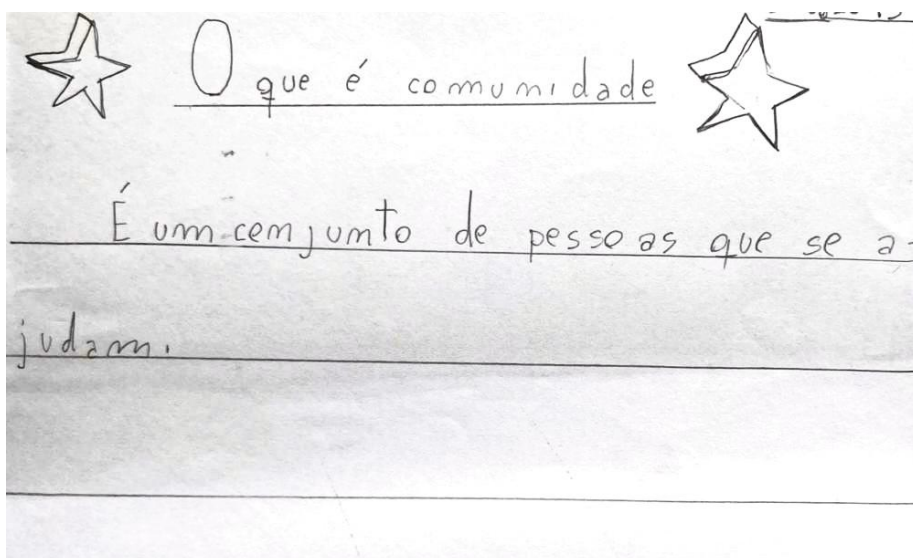 O que é comumidade
É um cemjumto de pessoas que se a-
judam.